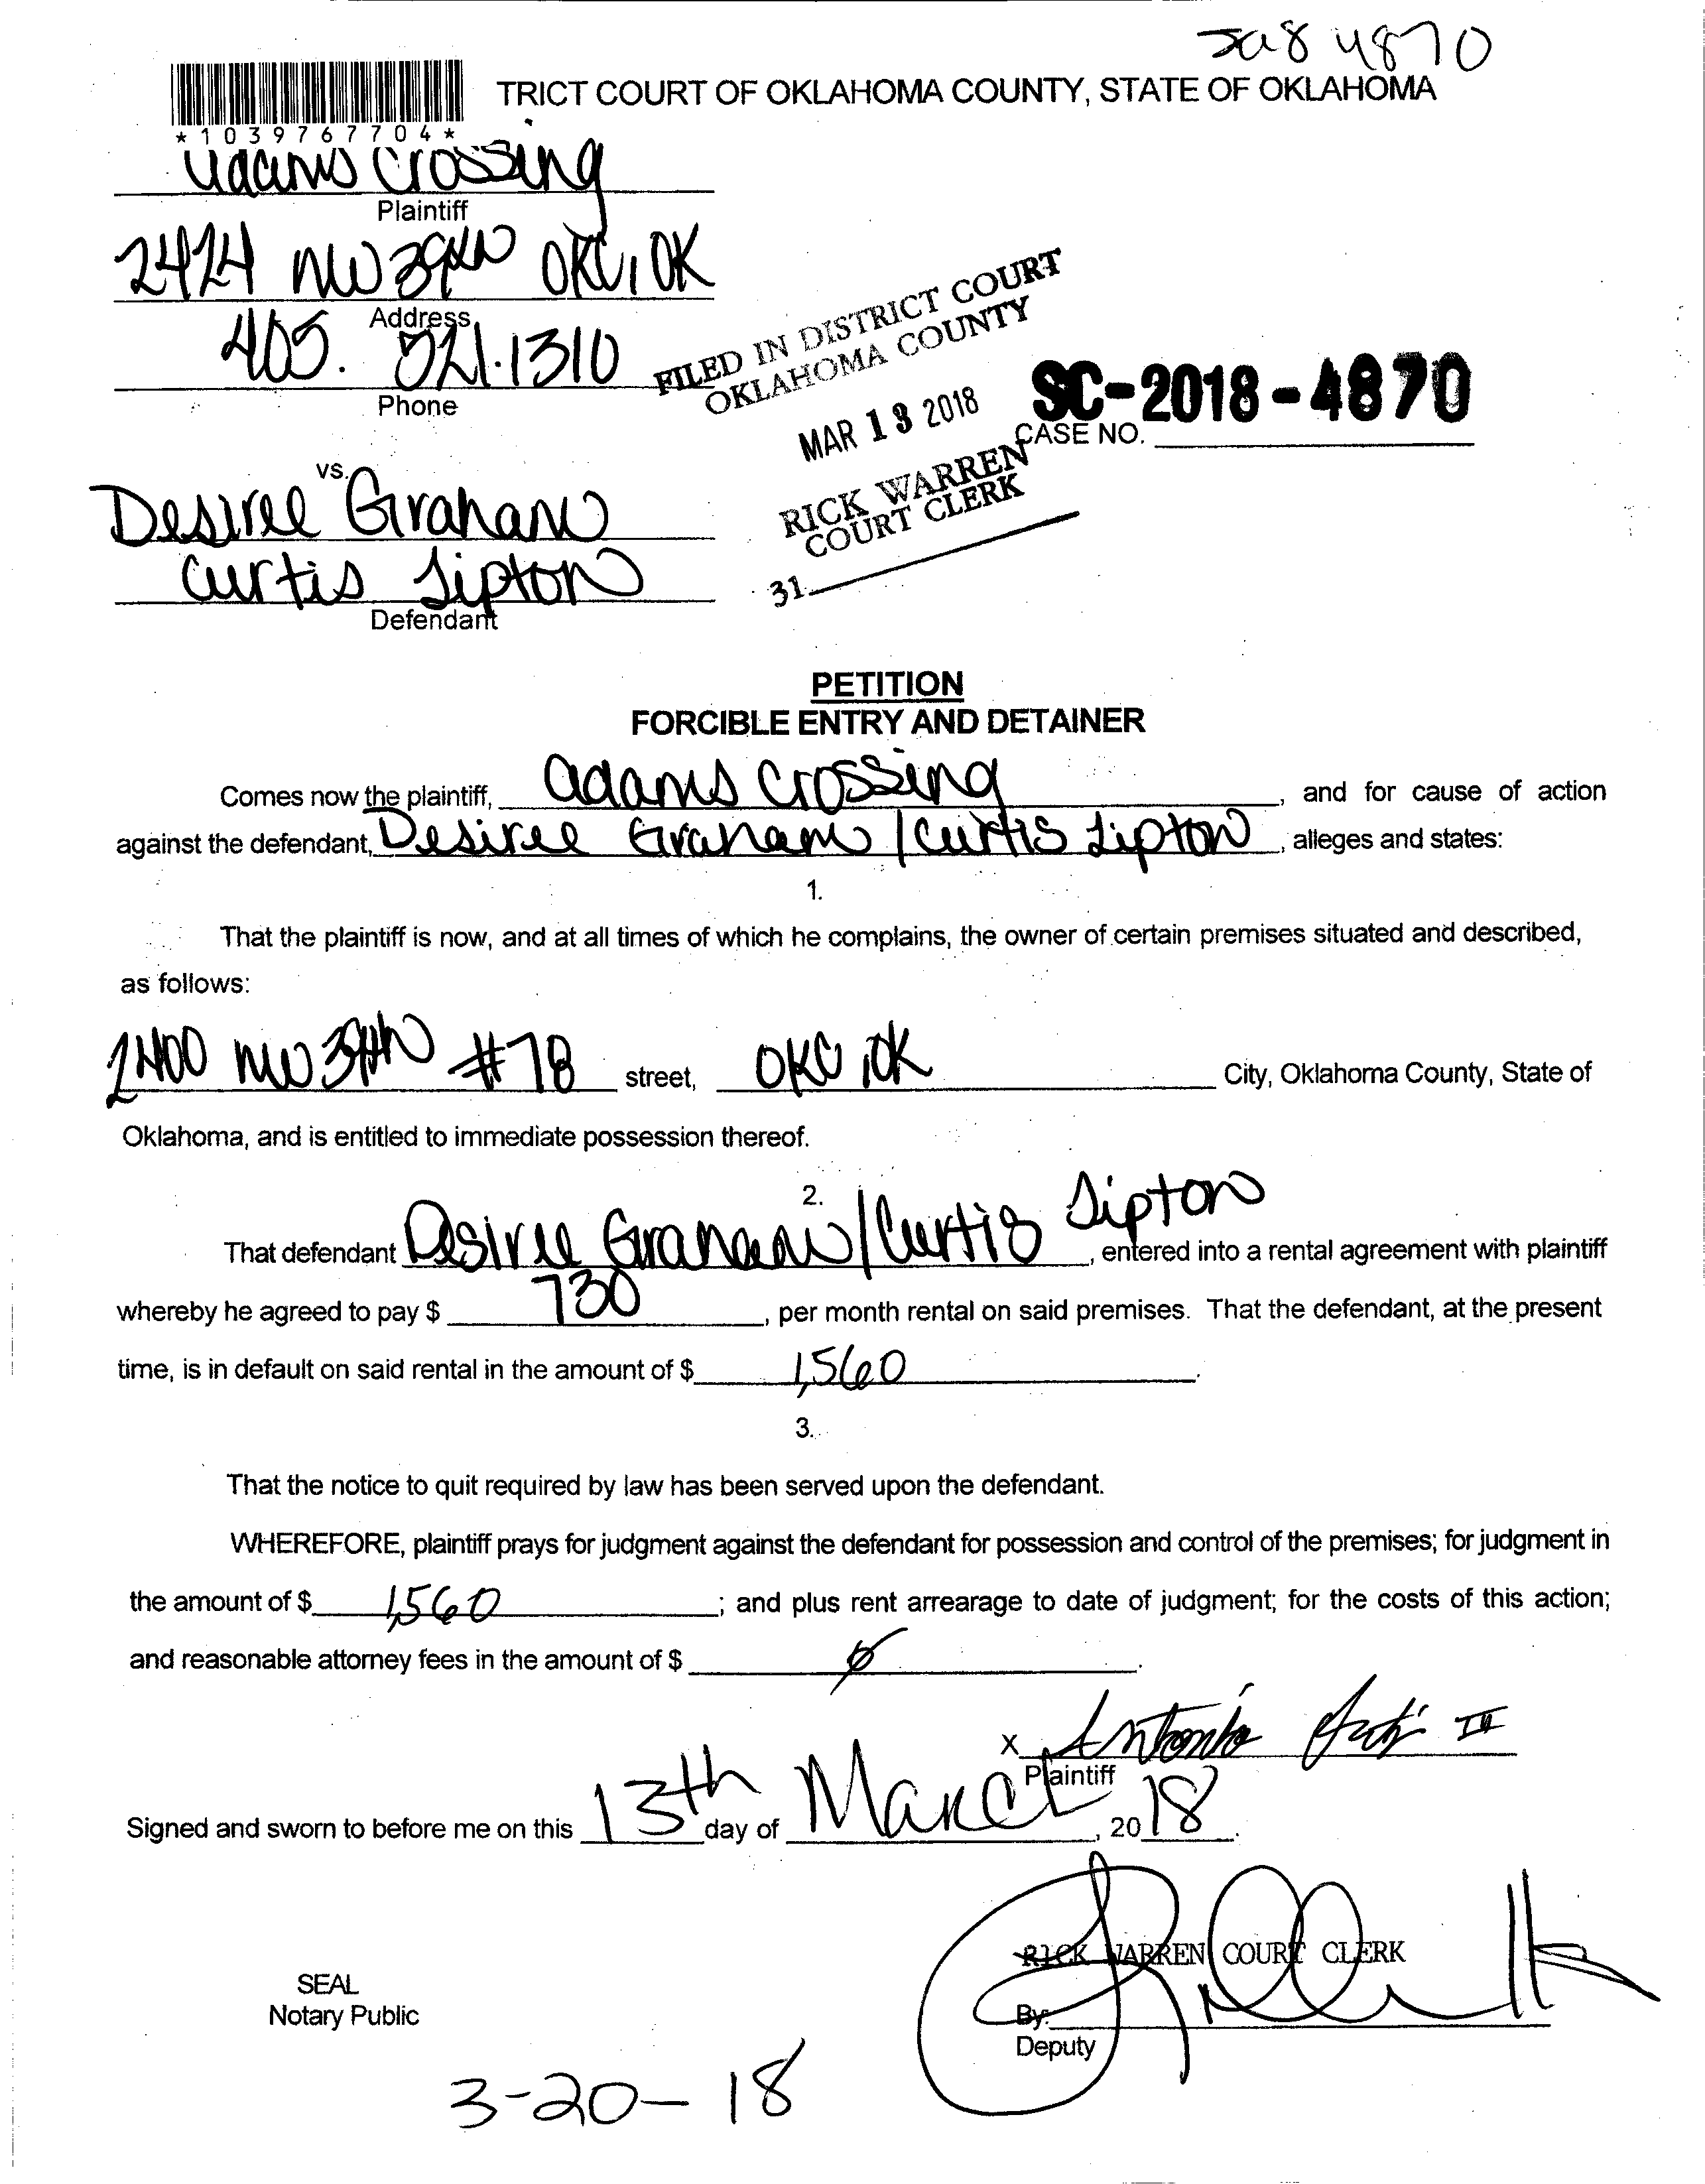 SC18 4870
TRICT COURT OF OKLAHOMA COUNTY, STATE OF OKLAHOMA
*1039767704*
adams Crossing
Plaintiff
2424 NW 39th OKC, OK
Address
405. 521.1310
Phone
FILED IN DISTRICT COURT
OKLAHOMA COUNTY
MAR 13 2018
RICK WARREN
COURT CLERK
31
SC-2018-4870
CASE NO.
vs.
Desiree Graham
Curtis Lipton
Defendant
PETITION
FORCIBLE ENTRY AND DETAINER
Comes now the plaintiff, adams Crossing, and for cause of action
against the defendant, Desiree Graham / Curtis Lipton, alleges and states:
1.
That the plaintiff is now, and at all times of which he complains, the owner of certain premises situated and described,
as follows:
2400 NW 39th #78 street, OKC, OK City, Oklahoma County, State of
Oklahoma, and is entitled to immediate possession thereof.
2.
That defendant Desiree Graham/Curtis Lipton, entered into a rental agreement with plaintiff
whereby he agreed to pay $ 730, per month rental on said premises. That the defendant, at the present
time, is in default on said rental in the amount of $ 1,560.
3.
That the notice to quit required by law has been served upon the defendant.
WHEREFORE, plaintiff prays for judgment against the defendant for possession and control of the premises; for judgment in
the amount of $ 1,560; and plus rent arrearage to date of judgment; for the costs of this action;
and reasonable attorney fees in the amount of $ 0.
X Antonio II
Plaintiff
Signed and sworn to before me on this 13th day of March, 2018.
RICK WARREN COURT CLERK
SEAL
Notary Public
By:
Deputy
3-20-18